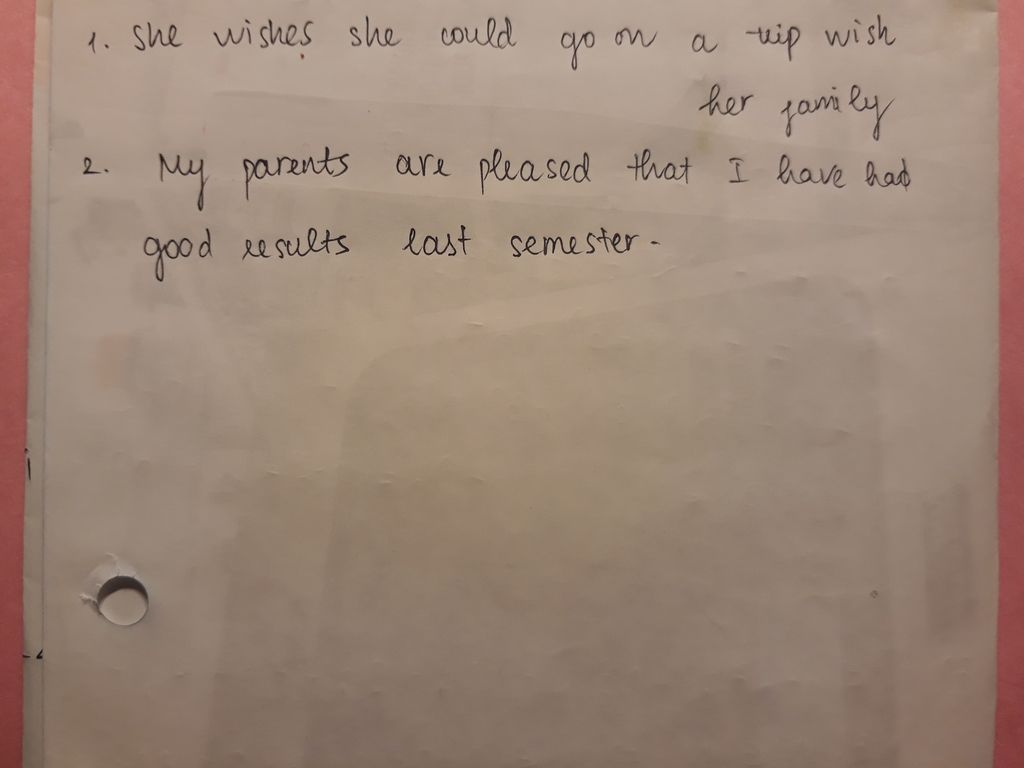 1. She wishes she could go on a trip wish
her family
2. My parents are pleased that I have had
good results last semester.